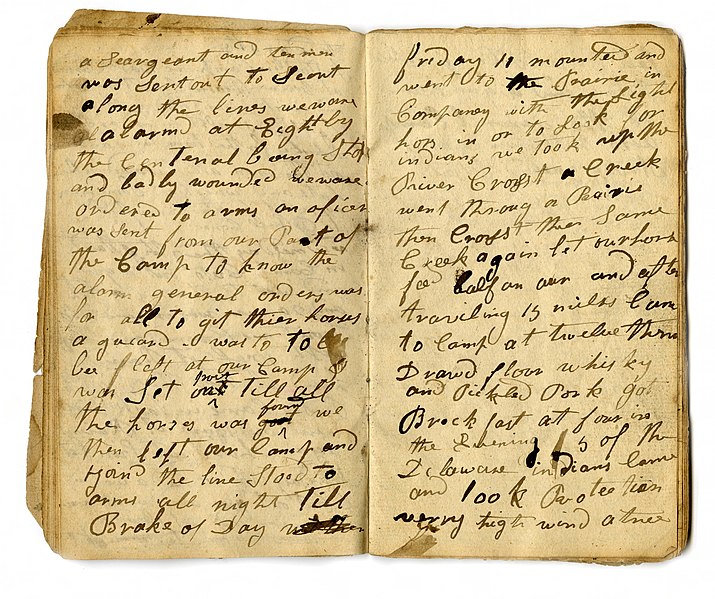 a Seargeant and ten men
was Sent out to Scout
along the lines we ware
alarmd at Eight by
the Centenal being Shot
and badly wounded we ware
ordered to arms an oficer
was Sent from our Part of
the Camp to know the
alarm general orders was
for all to git thier horses
a gaurd was to to be
bee left at our Camp
was Set out Till all
the horses was got we
then left our Camp and
Joind the line Stood to
arms all night Till
Brake of Day
friday 11 mounted and
went to the Prairie in
Companey with the Light
hors in or to Look for
indians we took up the
River Crosst a Creek
went throug a Peairie
then Crosst ther Same
Creek again let our hors
feed half an our and after
traveling 15 miles Came
to Camp at twelve then
Drawd flour whisky
and Pickled Pork got
Breckfast at four in
the Evening 15 of the
Delaware indians Came
and took Protection
verry high wind a tree